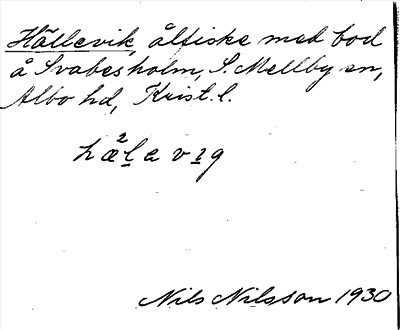 Hällevik, ålfiske med bod
å Svabesholm, S. Mellby sn,
Albo hd, Krist. l.
hæ²lavıg
Nils Nilsson 1930